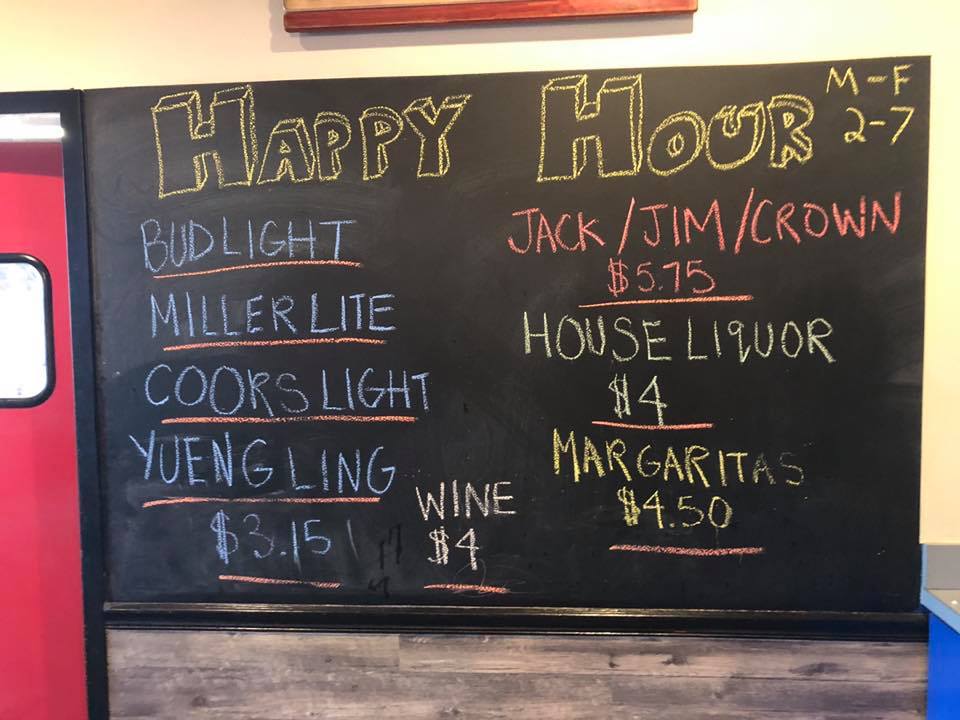 HAPPY HOUR
M-F
2-7
BUD LIGHT
MILLER LITE
COORS LIGHT
YUENGLING
$3.15
WINE
$4
JACK/JIM/CROWN
$5.75
HOUSE LIQUOR
$4
MARGARITAS
$4.50